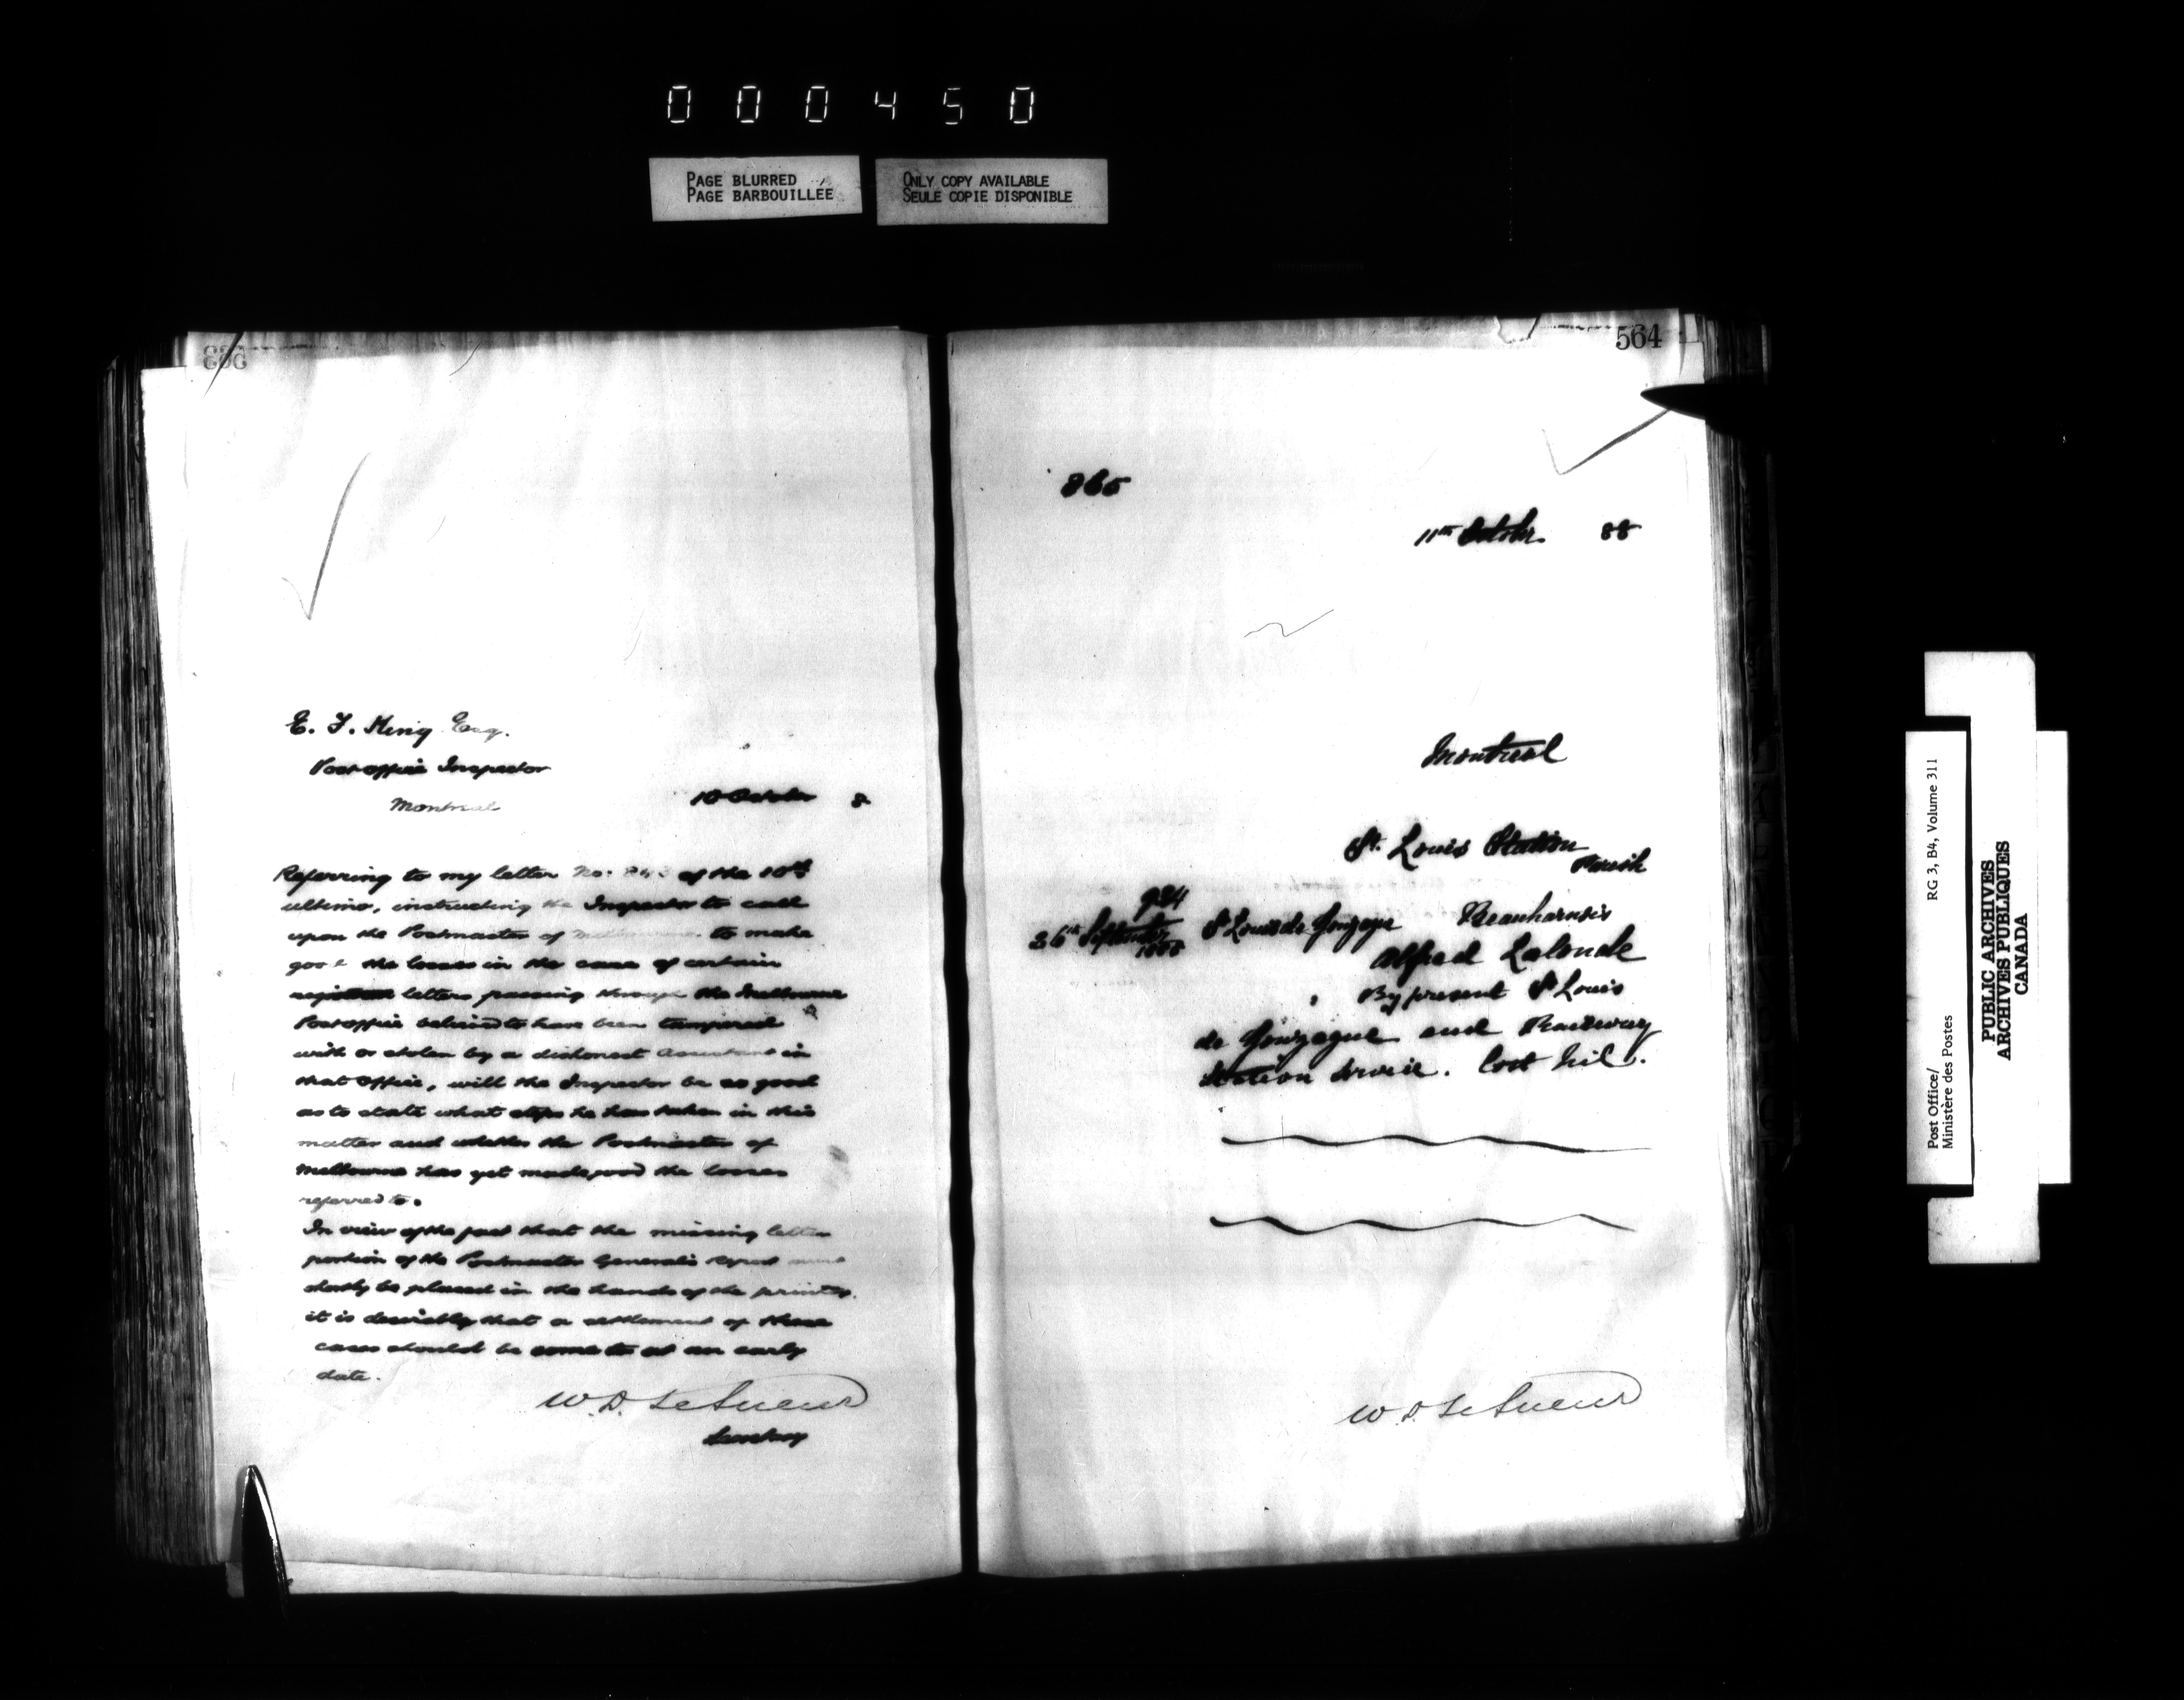 000450
PAGE BLURRED
PAGE BARBOUILLEE
ONLY COPY AVAILABLE
SEULE COPIE DISPONIBLE
E. F. King Esq.
Post office Inspector
Montreal
10 October 8
Referring to my letter No. of the 10th
ultimo, instructing the Inspector to call
upon the Postmaster of Melbourne to make
good the losses in the case of certain
registered letters passing through the Melbourne
Post office believed to have been tampered
with or stolen by a dishonest Assistant in
that Office, will the Inspector be so good
as to state what steps he has taken in this
matter and whether the Postmaster of
Melbourne has yet made good the losses
referred to.
In view of the fact that the missing letter
portion of the Postmaster General's Report must
shortly be placed in the hands of the printer,
it is desirably that a settlement of these
cases should be come to at an early
date.
W. D. LeSueur
Secretary
564
865
11th October 88
Montreal
St. Louis Station
Parish
924
26th September
1888
St Louis de Gonzague Beauharnois
Alfred Lalonde
By present St Louis
de Gonzague and Railway
Station Service. Cost Nil.
W. D. LeSueur
Post Office/
Ministère des Postes
RG 3, B4, Volume 311
PUBLIC ARCHIVES
ARCHIVES PUBLIQUES
CANADA